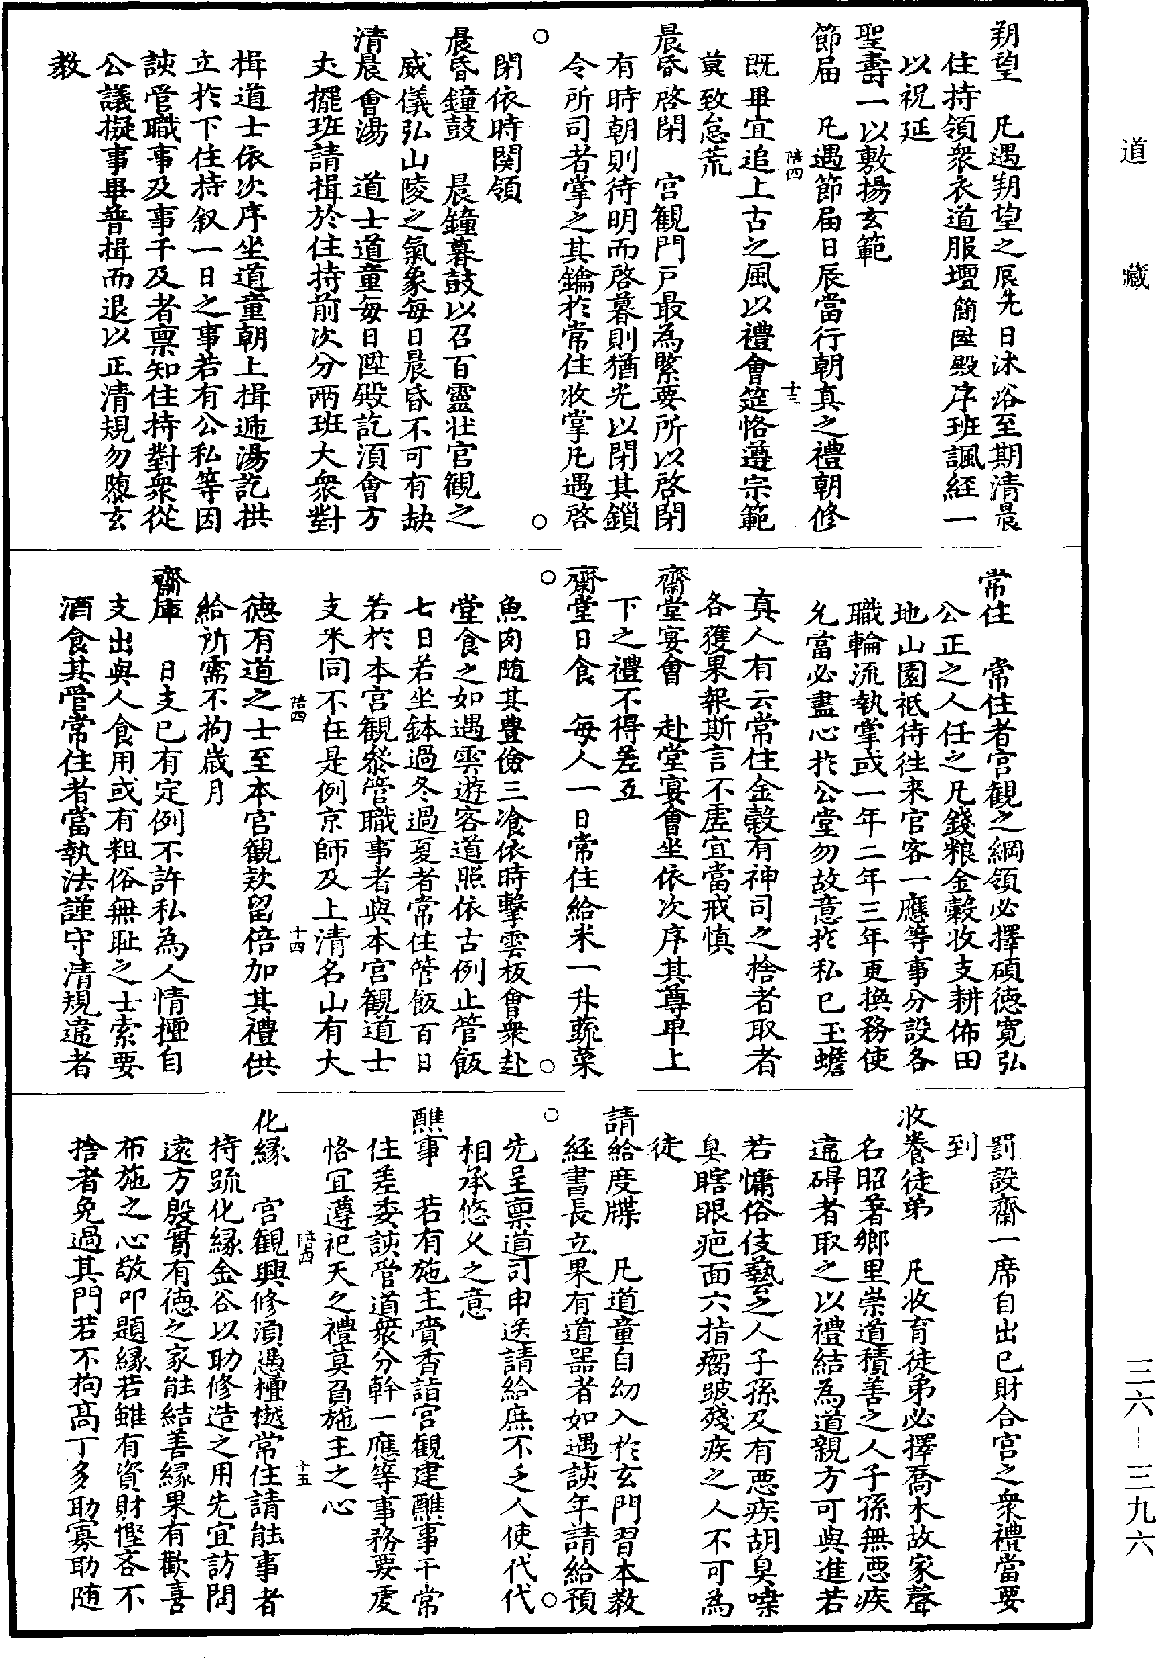 道藏
三六—三九六
朔望　凡遇朔望之辰先日沐浴至期清晨
住持領衆衣道服壇簡陞殿序班諷經一
以祝延
聖壽一以敷揚玄範
節届　凡遇節届日辰當行朝真之禮朝修
陪四　十三
既畢宜追上古之風以禮會筵恪遵宗範
莫致怠荒
晨昏啓閉　宫觀門戸最為緊要所以啓閉
有時朝則待明而啓暮則猶光以閉其鎖
令所司者掌之其鑰於常住收掌凡遇啓
閉依時関領
晨昏鐘鼓　晨鐘暮鼓以召百靈壯宫觀之
威儀弘山陵之氣象每日晨昏不可有缺
清晨會湯　道士道童每日陞殿訖湏會方
丈擺班請揖於住持前次分两班大衆對
揖道士依次序坐道童朝上揖遞湯訖拱
立於下住持叙一日之事若有公私等因
該管職事及事干及者禀知住持對衆從
公議擬事畢普揖而退以正清規勿隳玄
教
常住　常住者宫觀之綱領必擇碩德寛弘
公正之人任之凡錢粮金穀收支耕佈田
地山園祗待往来官客一應等事分設各
職輪流執掌或一年二年三年更換務使
允當必盡心於公堂勿故意於私已玉蟾
真人有云常住金穀有神司之捨者取者
各獲果報斯言不虚宜當戒慎
齋堂宴會　赴堂宴會坐依次序其尊卑上
下之禮不得差互
齋堂日食　每人一日常住給米一升蔬菜
魚肉随其豊儉三飡依時擊雲板會衆赴
堂食之如遇雲遊客道照依古例止管飯
七日若坐鉢過冬過夏者常住管飯百日
若於本宫觀叅管職事者與本宫觀道士
支米同不在是例京師及上清名山有大
陪四　十四
德有道之士至本宫觀欵留倍加其禮供
給所需不拘歲月
齋庫　日支已有定例不許私為人情擅自
支出與人食用或有粗俗無耻之士索要
酒食其管常住者當執法謹守清規違者
罰設齋一席自出已財合宫之衆禮當要
到
收養徒弟　凡收育徒弟必擇喬木故家聲
名昭著鄉里崇道積善之人子孫無悪疾
違碍者取之以禮結為道親方可與進若
若慵俗伎藝之人子孫及有悪疾胡臭喍
臭瞎眼疤面六指瘸跛殘疾之人不可為
徒
請給度牒　凡道童自幼入於玄門習本教
經書長立果有道器者如遇該年請給預
先呈禀道司申送請給庶不乏人使代代
相承悠乆之意
醮事　若有施主賫香詣宫觀建醮事干常
住差委該管道衆分幹一應等事務要虔
恪宜遵祀天之禮莫負施主之心
陪四　十五
化縁　宫觀興修湏憑檀樾常住請能事者
持䟽化縁金谷以助修造之用先宜訪問
逺方殷實有德之家能結善縁果有歡喜
布施之心敬叩題縁若雖有資財慳吝不
捨者免過其門若不拘髙丁多助寡助随